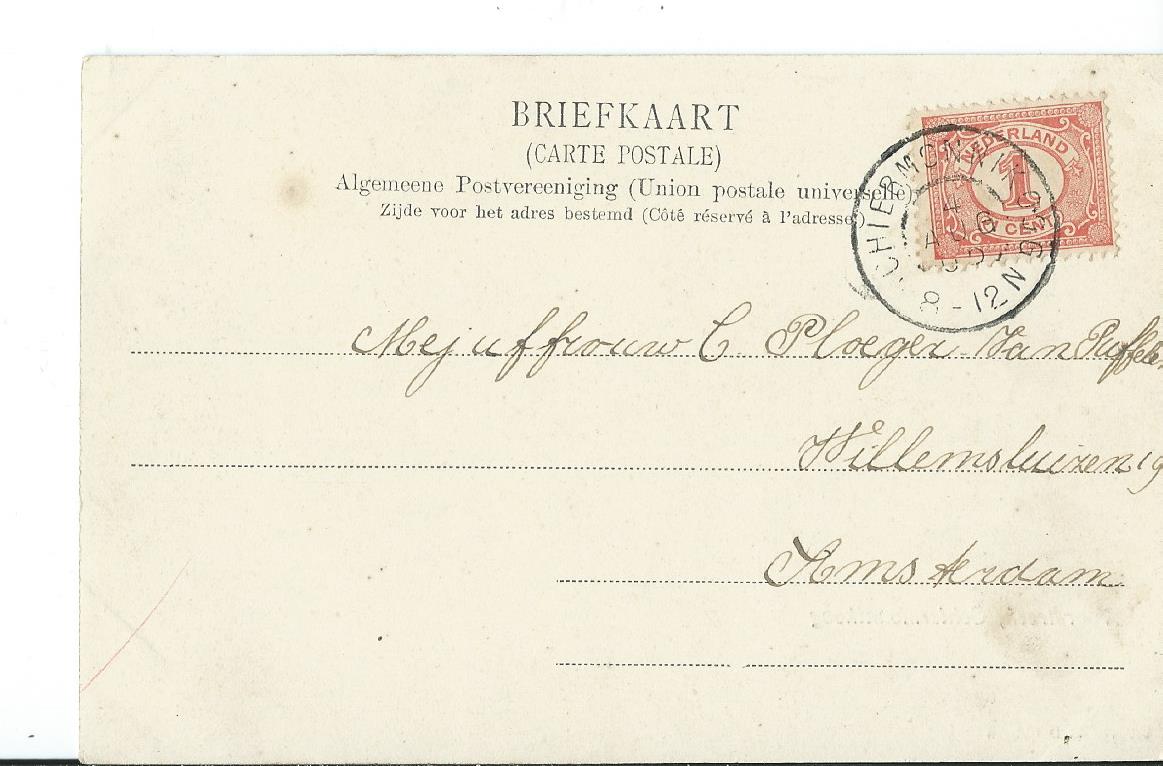 BRIEFKAART
(CARTE POSTALE)
Algemeene Postvereeniging (Union postale universelle)
Zijde voor het adres bestemd (Côté réservé à l'adresse)
NEDERLAND
1
CENT
CHIERMONNIKOOG
4
AUG
8-12N
Mejuffrouw C Ploeger-Van Puffelen
Willemsluizen 19
Amsterdam